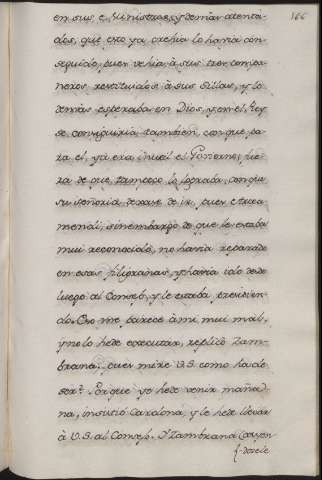 166
en sus, e, Ministros, y demas atenta-
dos, que esto ya crehia lo havia con-
seguido, pues vehia à sus tres compa-
ñeros restituidos à sus Sillas, y lo
demas esperaba en Dios, y en el Rey
se conseguiria tambien, con que pa-
ra el, ya era inutil el Govierno, fue-
ra de que tampoco lo lograba, con que
su señoria dexase de ir, pues
sinembargo de que le estaba
mui reconocido, no havia reparado
en esas filigranas, y havia ido desde
luego al Consejo, y le estaba presidien-
do. Eso me parece à mi mui mal,
y no lo hede executar, replicò Zam-
brana: pues mire V.S. como ha de
ser. Porque yo hede venir maña-
na, insistiò Cardona, y le hede llevar
à V.S. al Consejo. Y Zambrana